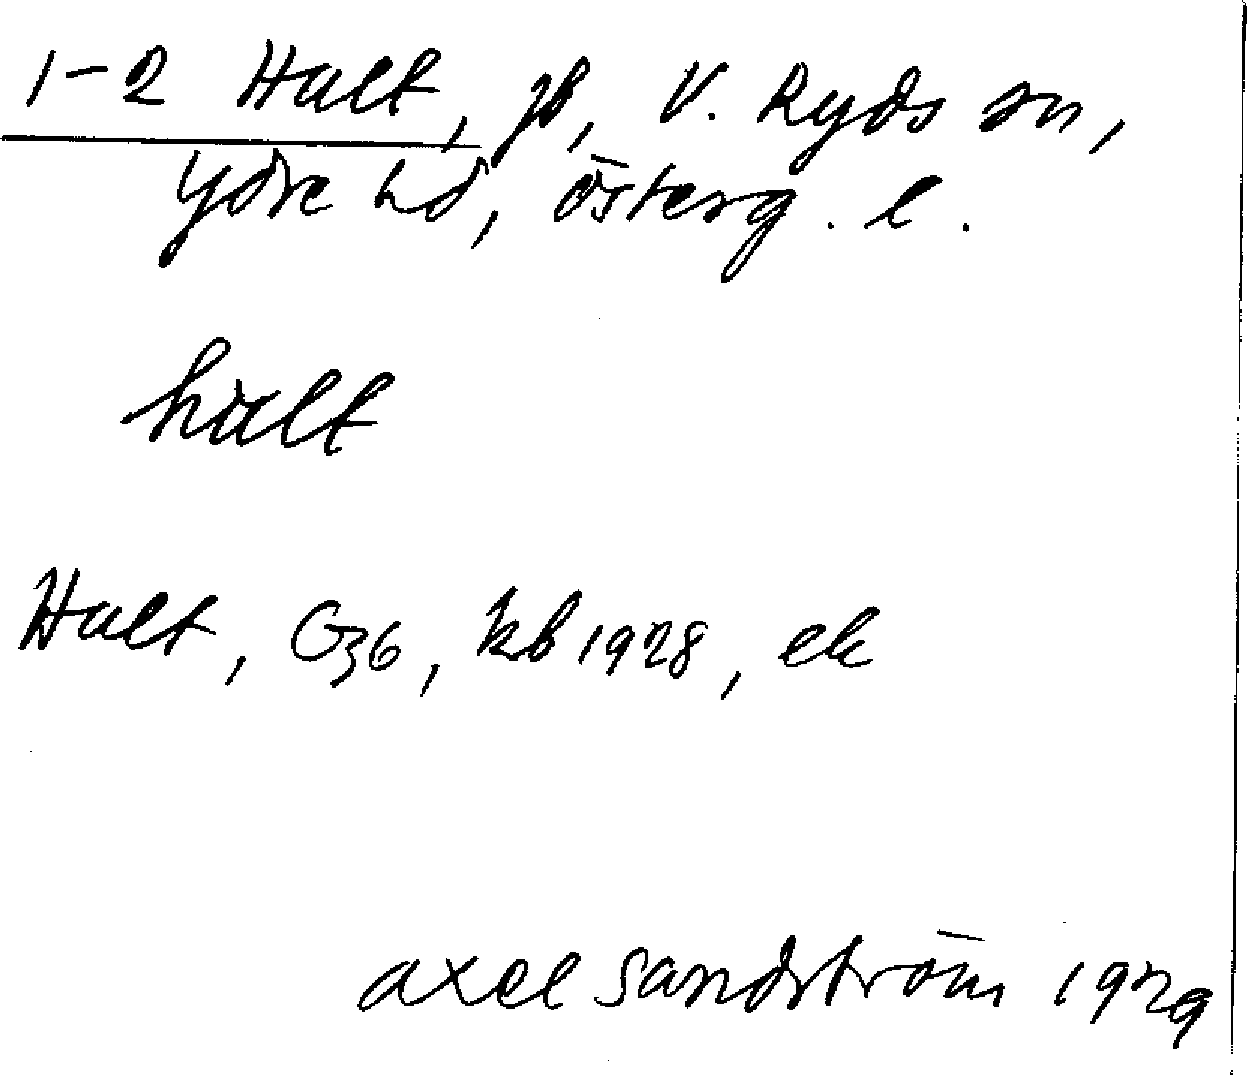 1-2 Hult, gb, V. Ryds sn,
Ydre hd, Österg. l.
hult
Hult, G36, kb 1928, ek
Axel Sandström 1929